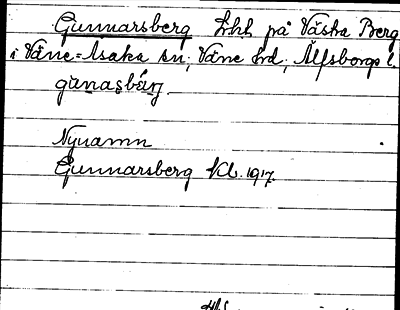 Gunnarsberg Lht på Västra Berg
i Väne-Åsaka sn, Väne hd, Älfsborgs l.
gùnasbárj.
Nynamn
Gunnarsberg Kl. 1917.